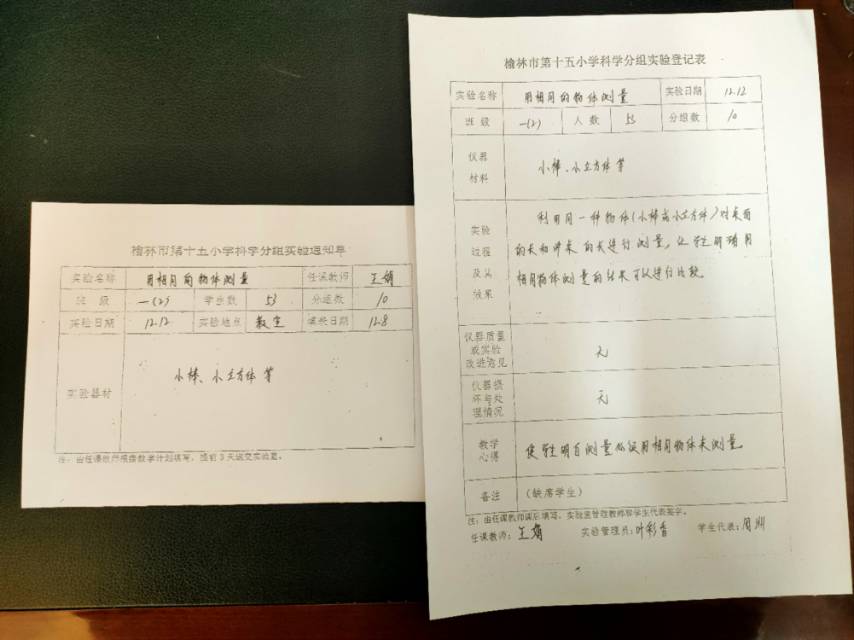 榆林市第十五小学科学分组实验通知单
实验名称 用相同的物体测量 任课教师 王娟
班 级 一(2) 学生数 53 分组数 10
实验日期 12.12 实验地点 教室 填表日期 12.8
实验器材 小棒、小立方体等
注:由任课教师根据教学计划填写,提前3天送交实验室。
榆林市第十五小学科学分组实验登记表
实验名称 用相同的物体测量 实验日期 12.12
班 级 一(2) 人 数 53 分组数 10
仪器
材料
小棒、小立方体等
实验
过程
及其
效果
利用同一种物体(小棒或小立方体)对桌面
的长和讲桌的长进行测量,让学生明确用
相同物体测量的结果可以进行比较。
仪器质量
或实验
改进意见
无
仪器损
坏与处
理情况
无
教学
心得
使学生明白测量必须用相同物体来测量。
备注 (缺席学生)
注:由任课教师课后填写,实验室管理教师和学生代表签字。
任课教师:王娟 实验管理员:叶彩香 学生代表: